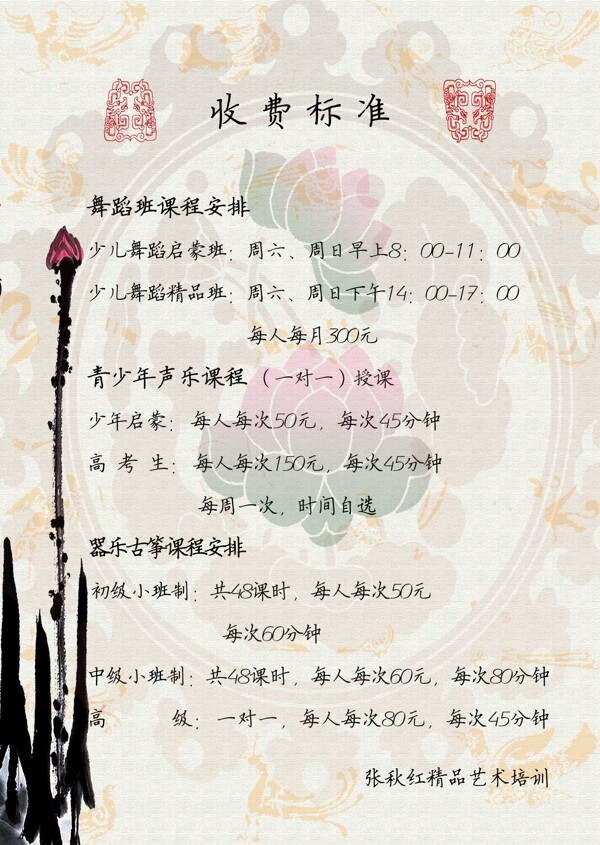 收费标准
舞蹈班课程安排
少儿舞蹈启蒙班：周六、周日早上8：00-11：00
少儿舞蹈精品班：周六、周日下午14：00-17：00
每人每月300元
青少年声乐课程（一对一）授课
少年启蒙：每人每次50元，每次45分钟
高 考 生：每人每次150元，每次45分钟
每周一次，时间自选
器乐古筝课程安排
初级小班制：共48课时，每人每次50元
每次60分钟
中级小班制：共48课时，每人每次60元，每次80分钟
高 级：一对一，每人每次80元，每次45分钟
张秋红精品艺术培训